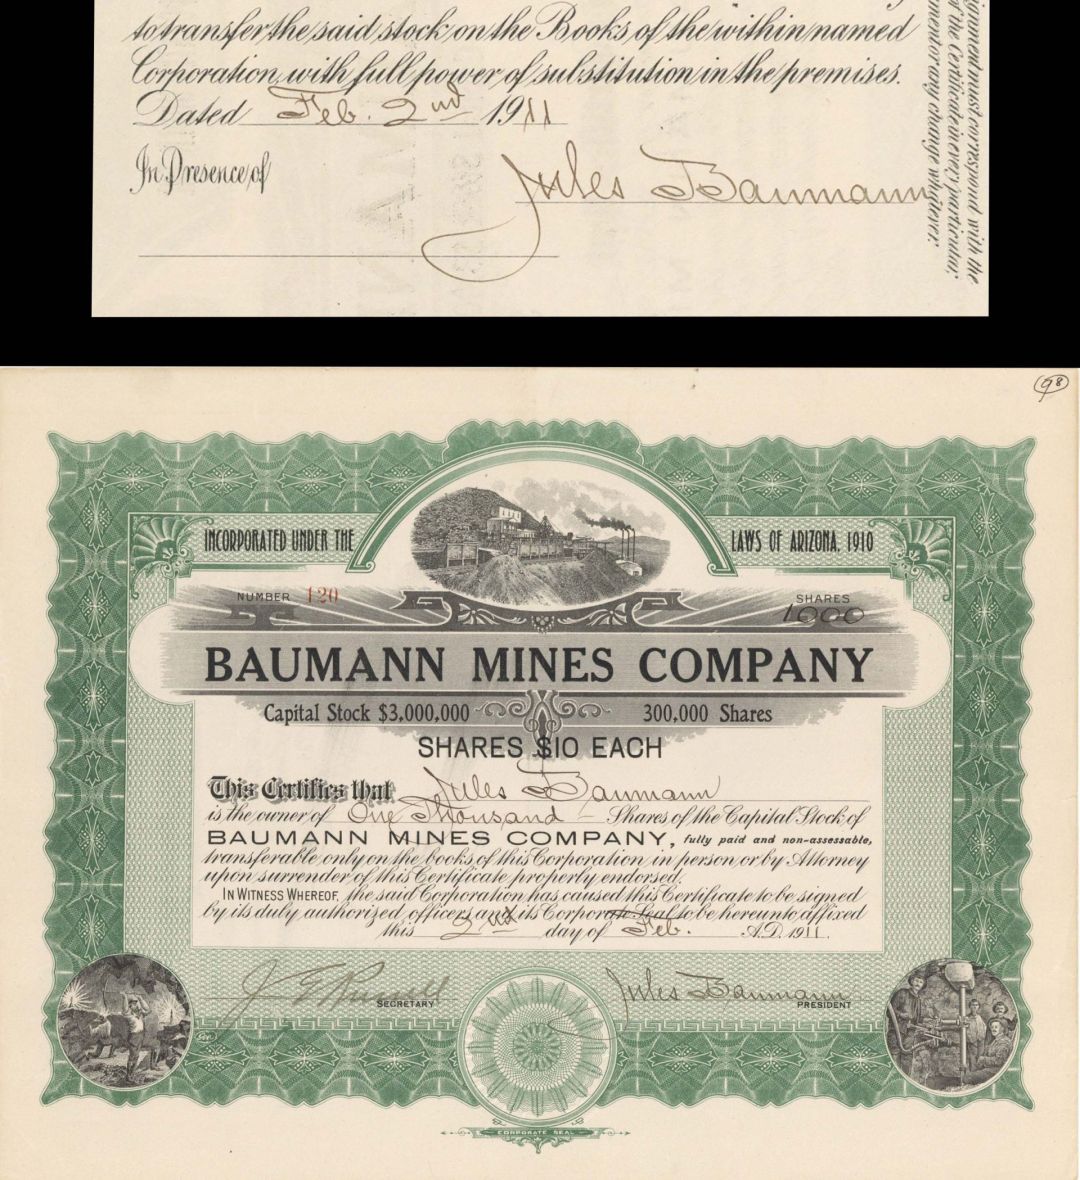 to transfer the said stock on the Books of the within named
Corporation, with full power of substitution in the premises.
Dated Feb. 2nd 1911
In Presence of
Jules Baumann
must correspond with the
of the Certificate in every particular,
or any change whatever.
98
INCORPORATED UNDER THE
LAWS OF ARIZONA, 1910
NUMBER 120
SHARES
1000
BAUMANN MINES COMPANY
Capital Stock $3,000,000
300,000 Shares
SHARES $10 EACH
This Certifies that Jules Baumann
is the owner of One Thousand - Shares of the Capital Stock of
BAUMANN MINES COMPANY, fully paid and non-assessable,
transferable only on the books of this Corporation in person or by Attorney
upon surrender of this Certificate properly endorsed.
IN WITNESS WHEREOF, the said Corporation has caused this Certificate to be signed
by its duly authorized officers and its Corporate Seal to be hereunto affixed
this 2nd day of Feb. A.D. 1911.
SECRETARY
Jules Baumann
PRESIDENT
CORPORATE SEAL